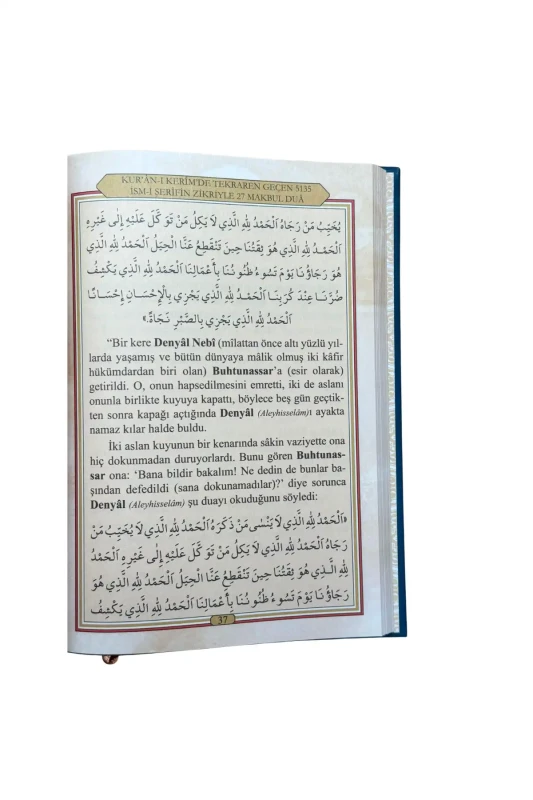 KUR'ÂN-I KERÎM'DE TEKRAREN GEÇEN 5135
İSM-İ ŞERİFİN ZİKRİYLE 27 MAKBUL DUÂ
يُخَيِّبُ مَنْ رَجَاهُ اَلْحَمْدُ لِلّٰهِ الَّذِي لَا يَكِلُ مَنْ تَوَكَّلَ عَلَيْهِ إِلٰى غَيْرِهِ
اَلْحَمْدُ لِلّٰهِ الَّذِي هُوَ ثِقَتُنَا حِينَ تَنْقَطِعُ عَنَّا الْحِيَلُ اَلْحَمْدُ لِلّٰهِ الَّذِي
هُوَ رَجَاؤُنَا يَوْمَ تَسُوءُ ظُنُونُنَا بِأَعْمَالِنَا اَلْحَمْدُ لِلّٰهِ الَّذِي يَكْشِفُ
ضُرَّنَا عِنْدَ كَرْبِنَا اَلْحَمْدُ لِلّٰهِ الَّذِي يَجْزِي بِالْإِحْسَانِ إِحْسَانًا
اَلْحَمْدُ لِلّٰهِ الَّذِي يَجْزِي بِالصَّبْرِ نَجَاةً.»
“Bir kere Denyâl Nebî (mîlattan önce altı yüzlü yıl-
larda yaşamış ve bütün dünyaya mâlik olmuş iki kâfir
hükümdardan biri olan) Buhtunassar'a (esir olarak)
getirildi. O, onun hapsedilmesini emretti, iki de aslanı
onunla birlikte kuyuya kapattı, böylece beş gün geçtik-
ten sonra kapağı açtığında Denyâl (Aleyhisselâm)ı ayakta
namaz kılar halde buldu.
İki aslan kuyunun bir kenarında sâkin vaziyette ona
hiç dokunmadan duruyorlardı. Bunu gören Buhtunas-
sar ona: ‘Bana bildir bakalım! Ne dedin de bunlar ba-
şından defedildi (sana dokunamadılar)?’ diye sorunca
Denyâl (Aleyhisselâm) şu duayı okuduğunu söyledi:
«اَلْحَمْدُ لِلّٰهِ الَّذِي لَا يَنْسٰى مَنْ ذَكَرَهُ اَلْحَمْدُ لِلّٰهِ الَّذِي لَا يُخَيِّبُ مَنْ
رَجَاهُ اَلْحَمْدُ لِلّٰهِ الَّذِي لَا يَكِلُ مَنْ تَوَكَّلَ عَلَيْهِ إِلٰى غَيْرِهِ اَلْحَمْدُ
لِلّٰهِ الَّذِي هُوَ ثِقَتُنَا حِينَ تَنْقَطِعُ عَنَّا الْحِيَلُ اَلْحَمْدُ لِلّٰهِ الَّذِي هُوَ
رَجَاؤُنَا يَوْمَ تَسُوءُ ظُنُونُنَا بِأَعْمَالِنَا اَلْحَمْدُ لِلّٰهِ الَّذِي يَكْشِفُ
37